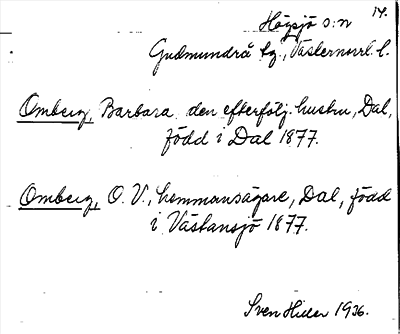 14.
Högsjö s:n
Gudmundrå tg., Västernorrl. l.
Omberg, Barbara den efterfölj. hustru, Dal,
född i Dal 1877.
Omberg, O. V., hemmansägare, Dal, född
i Västansjö 1877.
Sven Hider 1936.